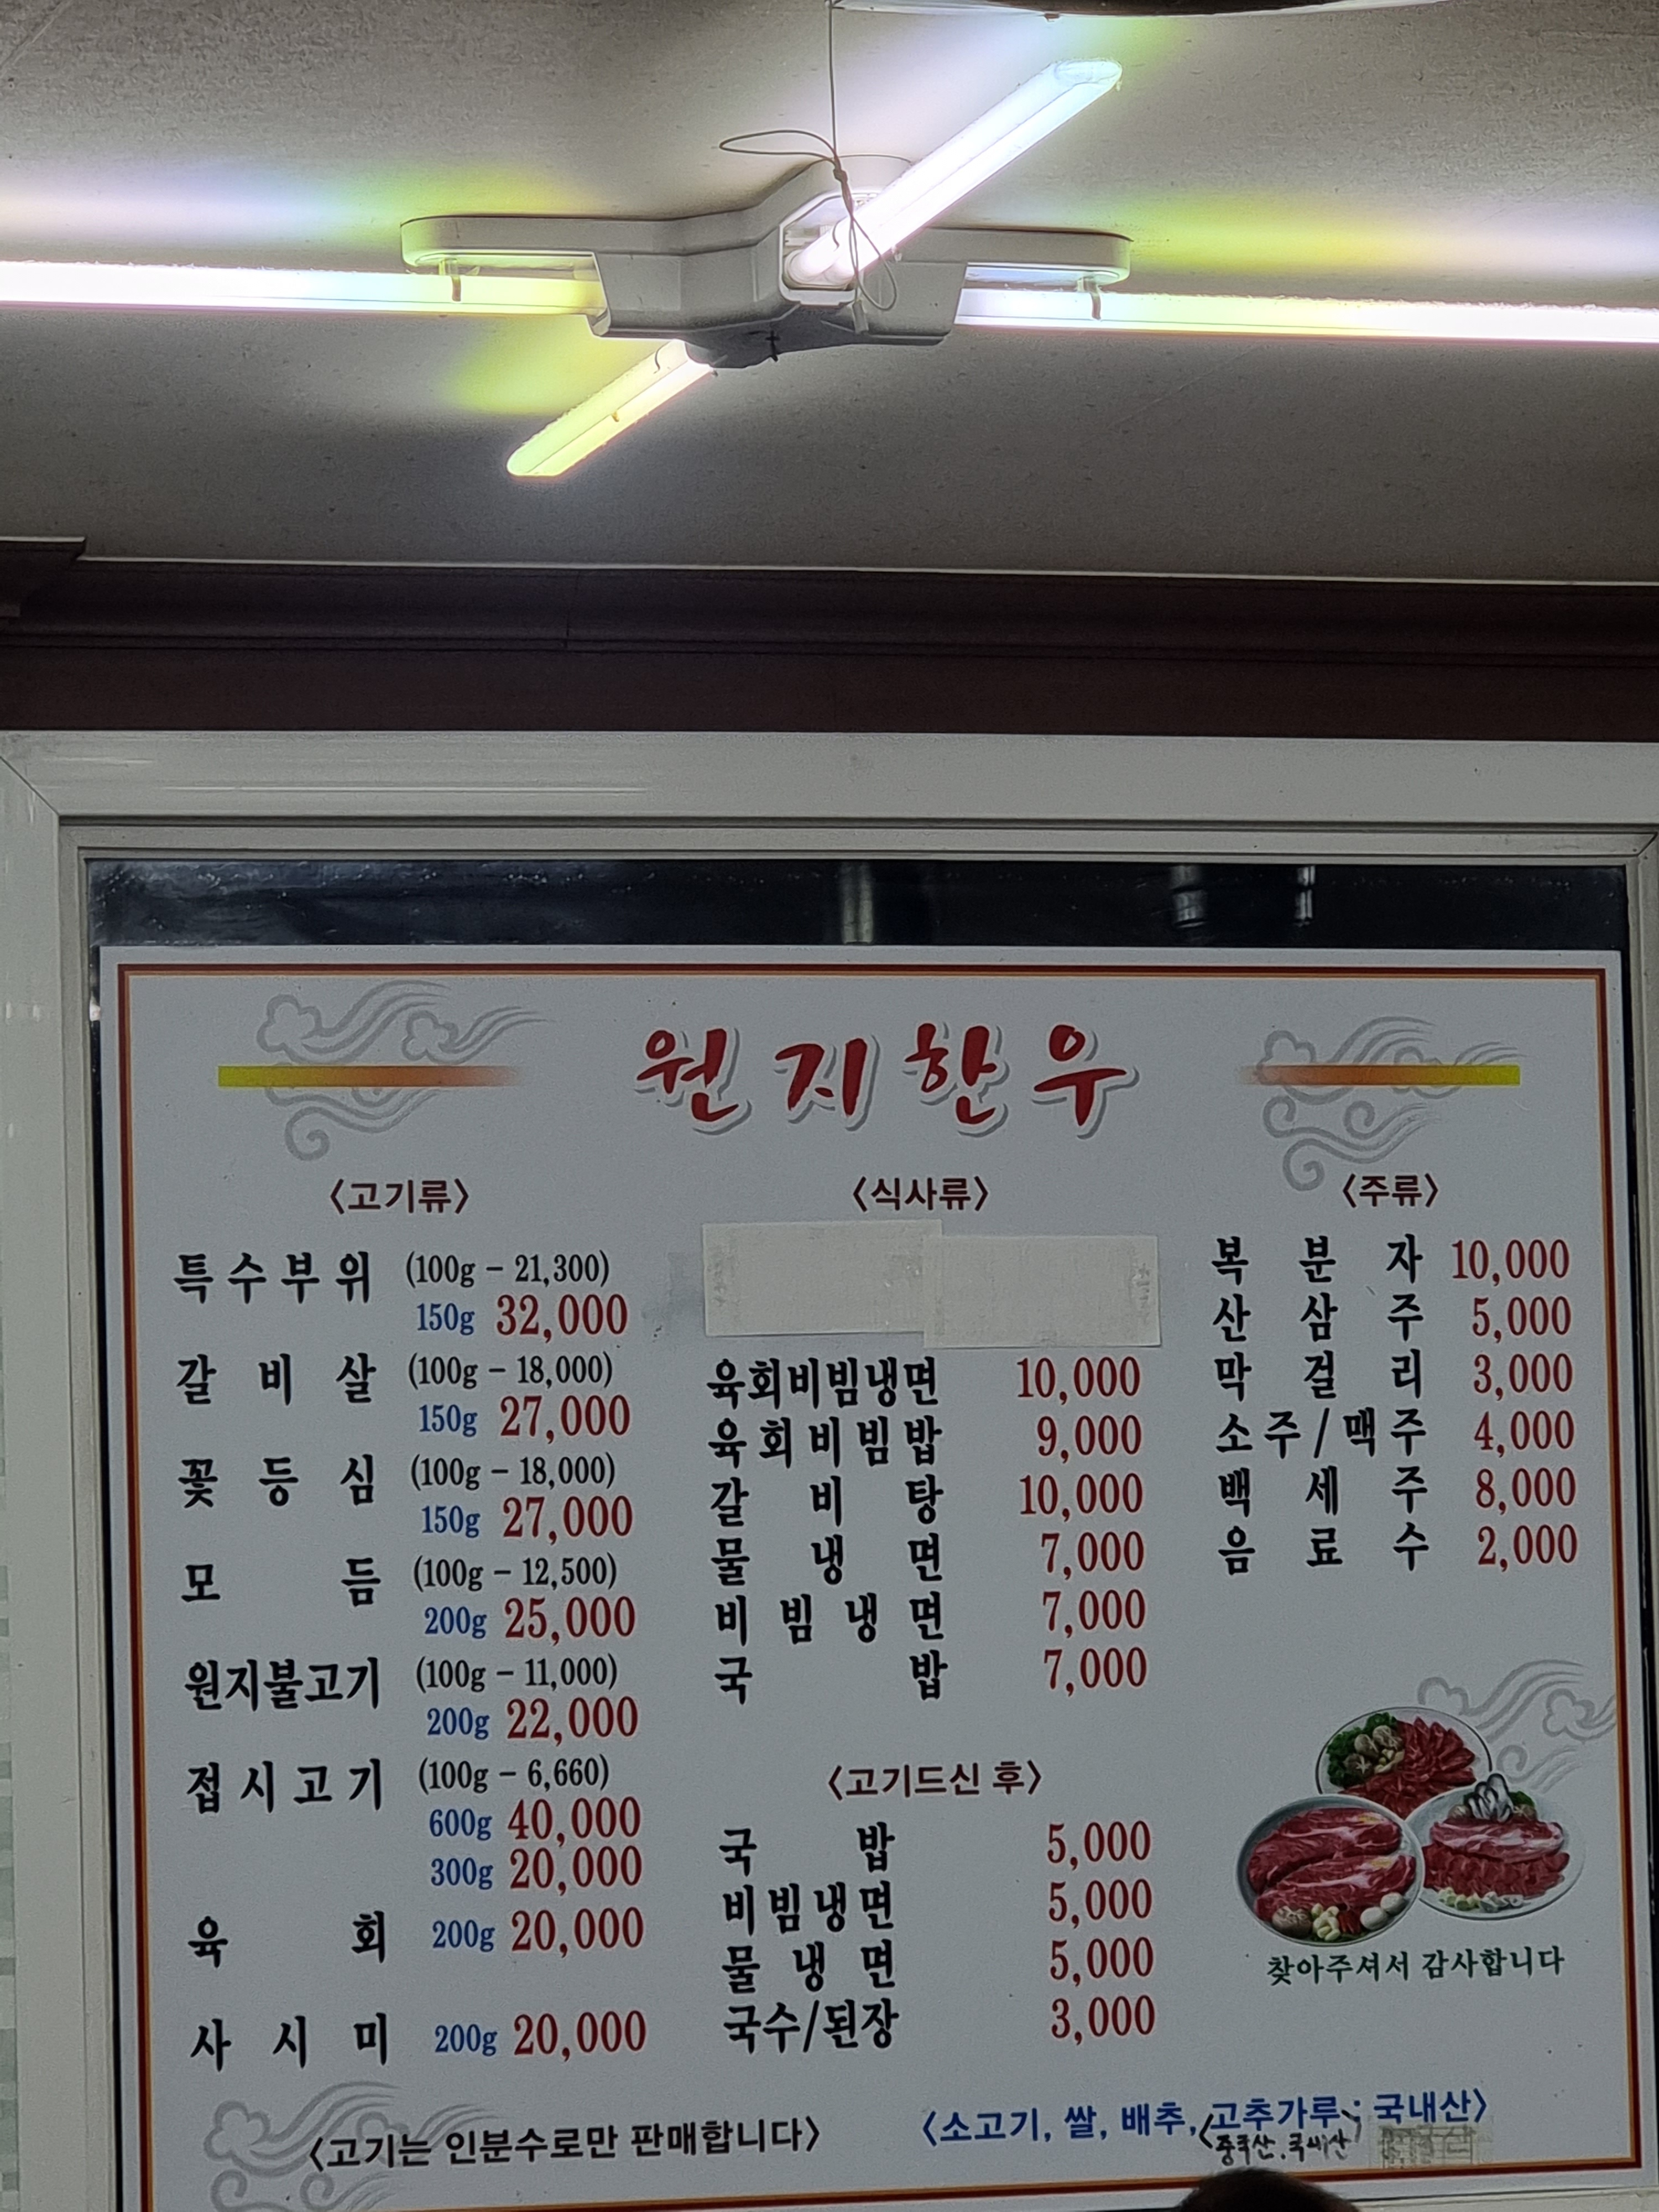 원지한우
〈고기류〉
특수부위 (100g - 21,300)
150g 32,000
갈비살 (100g - 18,000)
150g 27,000
꽃등심 (100g - 18,000)
150g 27,000
모듬 (100g - 12,500)
200g 25,000
원지불고기 (100g - 11,000)
200g 22,000
접시고기 (100g - 6,660)
600g 40,000
300g 20,000
육회 200g 20,000
사시미 200g 20,000
〈고기는 인분수로만 판매합니다〉
〈식사류〉
육회비빔냉면 10,000
육회비빔밥 9,000
갈비탕 10,000
물냉면 7,000
비빔냉면 7,000
국밥 7,000
〈고기드신 후〉
국밥 5,000
비빔냉면 5,000
물냉면 5,000
국수/된장 3,000
〈주류〉
복분자 10,000
산삼주 5,000
막걸리 3,000
소주/맥주 4,000
백세주 8,000
음료수 2,000
찾아주셔서 감사합니다
〈소고기, 쌀, 배추, 고추가루 ; 국내산〉
중국산.국내산